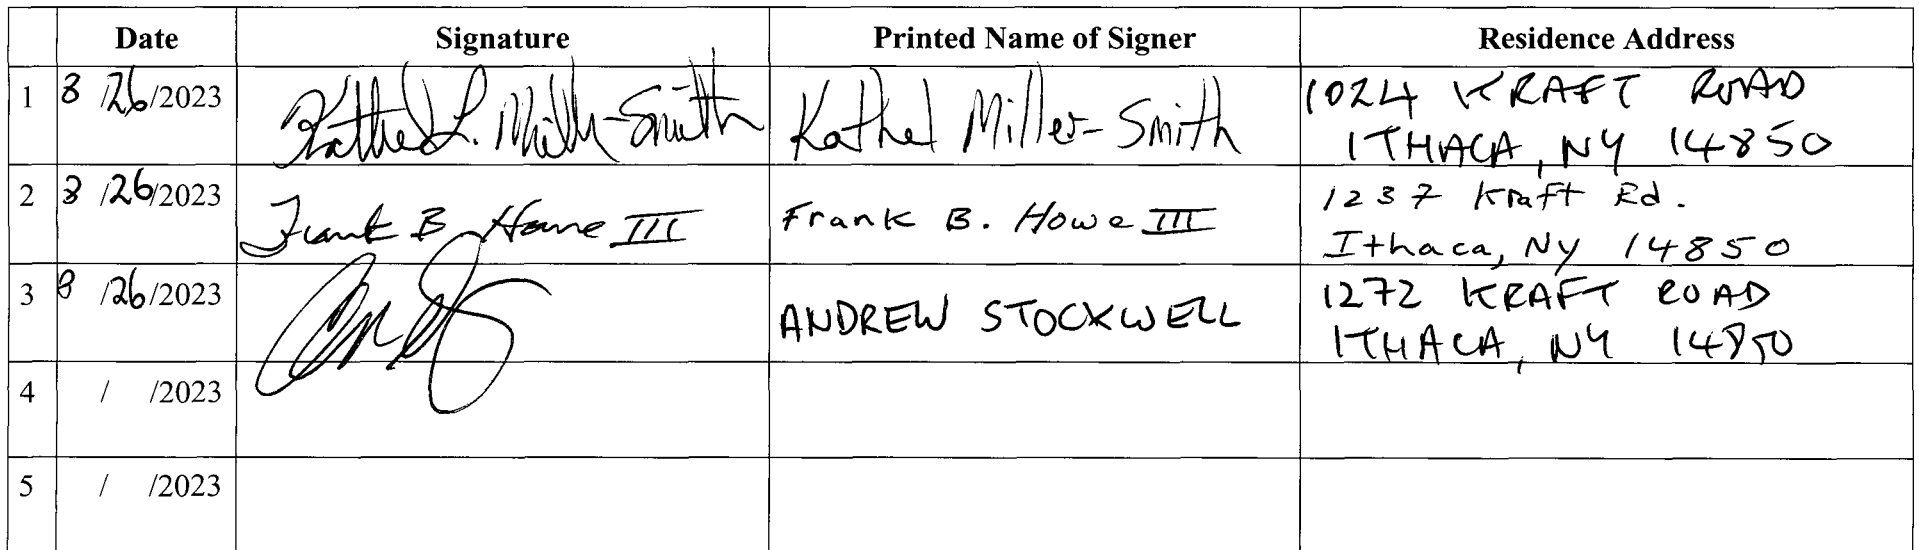 Date Signature Printed Name of Signer Residence Address
1 8/26/2023 Kathel L. Miller-Smith Kathel Miller-Smith 1024 KRAFT ROAD
ITHACA, NY 14850
2 8/26/2023 Frank B Howe III Frank B. Howe III 1237 Kraft Rd.
Ithaca, NY 14850
3 8/26/2023 ANDREW STOCKWELL 1272 KRAFT ROAD
ITHACA, NY 14850
4 / /2023
5 / /2023